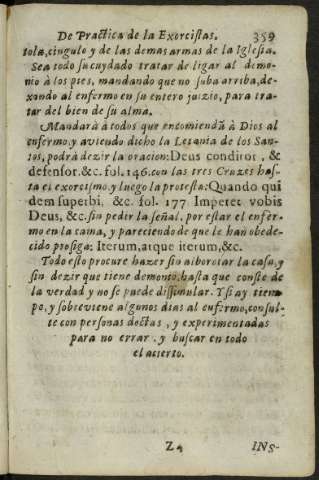 De Practica de la Exorcistas. 359
tola, cingulo y de las demas armas de la Iglesia.
Sea todo su cuydado tratar de ligar al demo-
nio à los pies, mandando que no suba arriba, de-
xando al enfermo en su entero juizio, para tra-
tar del bien de su alma.
Mandarà à todos que encomiendẽ à Dios al
enfermo, y aviendo dicho la Letania de los San-
tos, podrà dezir la oracion: Deus conditor, &
defensor. &c. fol. 146. con las tres Cruzes has-
ta el exorcismo, y luego la protesta: Quando qui
dem superbi, &c. fol. 177. Imperet vobis
Deus, &c. sin pedir la señal, por estar el enfer-
mo en la cama, y pareciendo de que le han obede-
cido prosiga: Iterum, atque iterum, &c.
Todo esto procure hazer sin alborotar la casa, y
sin dezir que tiene demonio, hasta que conste de
la verdad y no se puede dissimular. Y si ay tiem-
po, y sobreviene algunos dias al enfermo, consul-
te con personas doctas, y experimentadas
para no errar, y buscar en todo
el acierto.
Z4 INS-